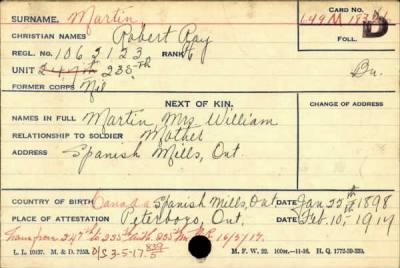 SURNAME, Martin CARD NO.
CHRISTIAN NAMES Robert Ray
FOLL. D
REGL. NO. 1062123 RANK
UNIT 247th 235th Bn.
FORMER CORPS Nil
NEXT OF KIN. CHANGE OF ADDRESS
NAMES IN FULL Martin Mrs William
RELATIONSHIP TO SOLDIER Mother
ADDRESS Spanish Mills, Ont.
COUNTRY OF BIRTH Canada Spanish Mills, Ont DATE Jan 22nd 1898
PLACE OF ATTESTATION Peterboro, Ont. DATE Feb. 10th 1917
Trans from 247th to 235th 16/3/17.
L. L. 10137. M. & D. 7953. D/S 3-5-17. M. F. W. 22. 100M.—11-16. H. Q. 1772-39-339.